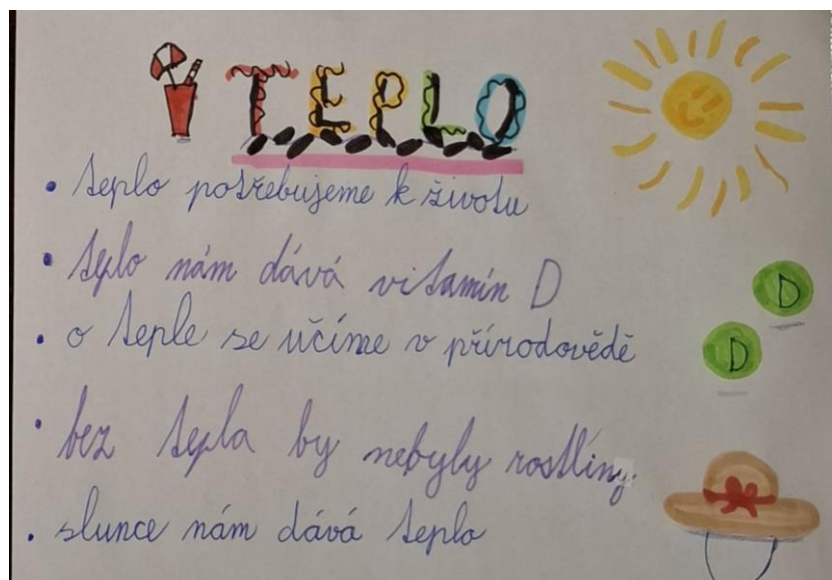 TEPLO
• teplo potřebujeme k životu
• teplo nám dává vitamín D
• o teple se učíme v přírodovědě
• bez tepla by nebyly rostliny
• slunce nám dává teplo
D
D